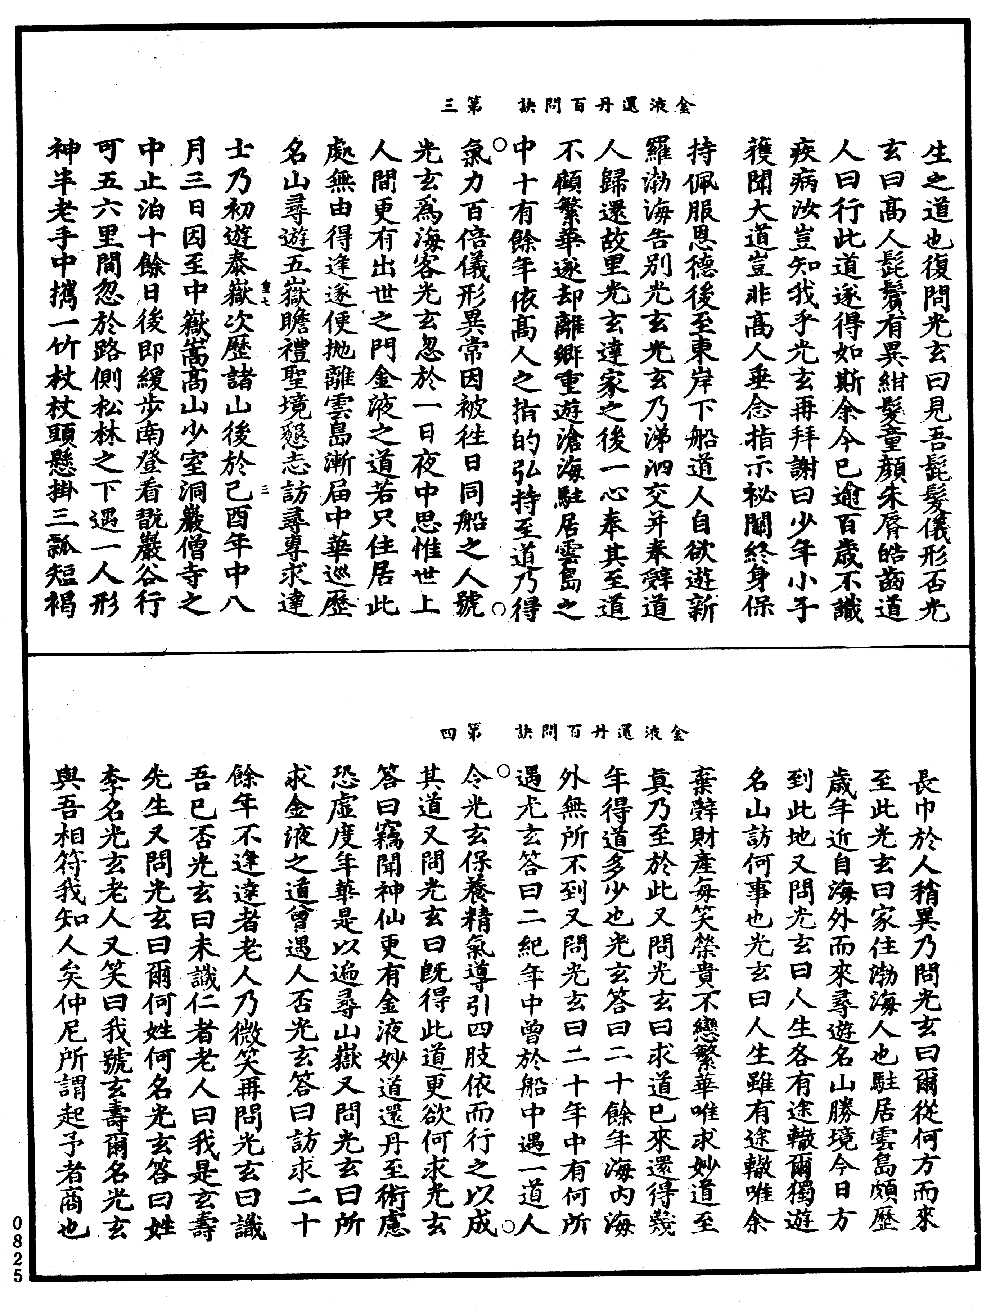 金液還丹百問訣　第三
生之道也復問光玄曰見吾髭髮儀形否光
玄曰高人髭鬢有異紺髮童顏朱脣皓齒道
人曰行此道遂得如斯余今已逾百歲不識
疾病汝豈知我乎光玄再拜謝曰少年小子
獲聞大道豈非高人垂念指示祕關終身保
持佩服恩德後至東岸下船道人自欲遊新
羅渤海告別光玄光玄乃涕泗交幷奉辭道
人歸還故里光玄達家之後一心奉其至道
不顧繁華遂却離鄉重遊滄海駐居雲島之
中十有餘年依高人之指的弘持至道乃得
氣力百倍儀形異常因被往日同船之人號
光玄爲海客光玄忽於一日夜中思惟世上
人間更有出世之門金液之道若只住居此
處無由得逢遂便抛離雲島漸届中華巡歷
名山尋遊五嶽瞻禮聖境懇志訪尋專求達
士乃初遊泰嶽次歷諸山後於己酉年中八
月三日因至中嶽嵩高山少室洞巖僧寺之
中止泊十餘日後即緩步南登看翫巖谷行
可五六里間忽於路側松林之下遇一人形
神半老手中攜一竹杖杖頭懸掛三瓢短褐
金液還丹百問訣　第四
長巾於人稍異乃問光玄曰爾從何方而來
至此光玄曰家住渤海人也駐居雲島頗歷
歲年近自海外而來尋遊名山勝境今日方
到此地又問光玄曰人生各有途轍爾獨遊
名山訪何事也光玄曰人生雖有途轍唯余
棄辭財產每笑榮貴不戀繁華唯求妙道至
真乃至於此又問光玄曰求道已來還得幾
年得道多少也光玄答曰二十餘年海內海
外無所不到又問光玄曰二十年中有何所
遇光玄答曰二紀年中曾於船中遇一道人
令光玄保養精氣導引四肢依而行之以成
其道又問光玄曰旣得此道更欲何求光玄
答曰竊聞神仙更有金液妙道還丹至術慮
恐虛度年華是以遍尋山嶽又問光玄曰所
求金液之道曾遇人否光玄答曰訪求二十
餘年不逢達者老人乃微笑再問光玄曰識
吾已否光玄曰未識仁者老人曰我是玄壽
先生又問光玄曰爾何姓何名光玄答曰姓
李名光玄老人又笑曰我號玄壽爾名光玄
與吾相符我知人矣仲尼所謂起予者商也
0825